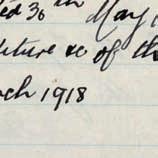 ed 36 in May
diture &c of th
rch 1918